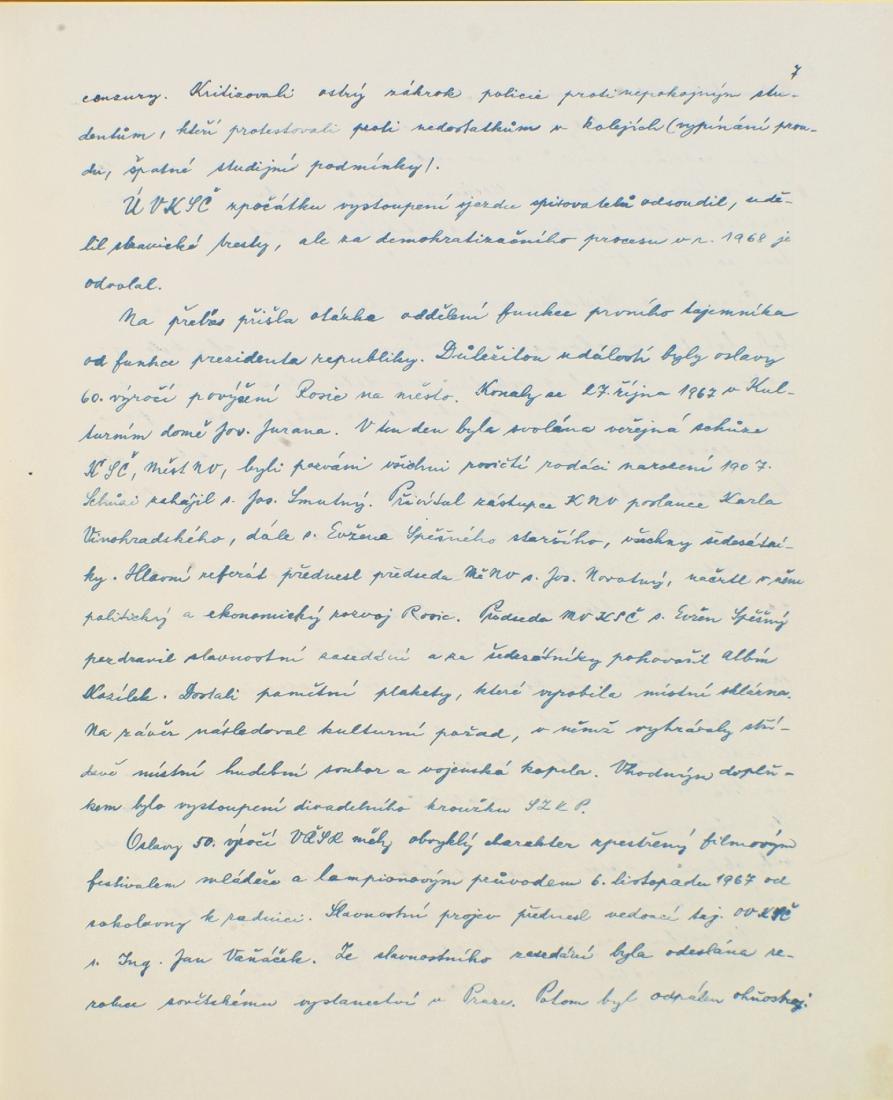 7
censury. Kritizovali ostrý zákrok policie proti nepokojným stu-
dentům, kteří protestovali proti nedostatkům v kolejích (vypínání prou-
du, špatné studijní podmínky).
ÚVKSČ zpočátku vystoupení sjezdu spisovatelů odsoudil, udě-
lil stranické tresty, ale za demokratizačního procesu v r. 1968 je
odvolal.
Na přetřes přišla otázka oddělení funkce prvního tajemníka
od funkce presidenta republiky. Důležitou událostí byly oslavy
60. výročí povýšení Rosic na město. Konaly se 27. října 1967 v Kul-
turním domě Jos. Jurana. V ten den byla svolána veřejná schůze
KSČ, MěstNV, byli pozváni všichni rosičtí rodáci narození 1907.
Schůzi zahájil s. Jos. Smutný. Přivítal zástupce KNV poslance Karla
Vinohradského, dále s. Evžena Spěšného staršího, všechny šedesátní-
ky. Hlavní referát přednesl předseda MěNV s. Jos. Novotný, načrtl v něm
politický a ekonomický rozvoj Rosic. Předseda MV KSČ s. Evžen Spěšný
pozdravil slavnostní zasedání a za šedesátníky pohovořil Albín
Kozílek. Dostali pamětní plakety, které vyrobila místní sklárna.
Na závěr následoval kulturní pořad, v němž vyhrávaly stří-
davě místní hudební soubor a vojenská kapela. Vhodným doplň-
kem bylo vystoupení divadelního kroužku SZKP.
Oslavy 50. výročí VŘSR měly obvyklý charakter zpestřený filmovým
festivalem mládeže a lampionovým průvodem 6. listopadu 1967 od
sokolovny k radnici. Slavnostní projev přednesl vedoucí taj. OV KSČ
s. Ing. Jan Vaňáček. Ze slavnostního zasedání byla odeslána re-
zoluce sovětskému vyslanectví v Praze. Potom byl odpálen ohňostroj.